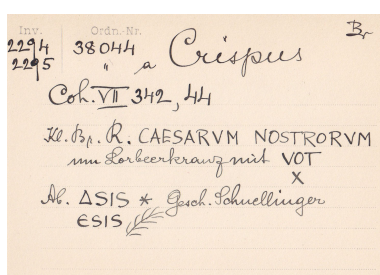 Inv. Ordn.-Nr. Br
2294 38044 Crispus
2295 " a
Coh. VII 342, 44
Kl. Br. R. CAESARVM NOSTRORVM
um Lorbeerkranz mit VOT
X
Ab. ΔSIS * Gesch. Schnellinger
ЄSIS